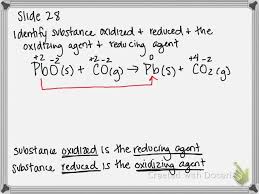 Slide 28
Identify substance oxidized + reduced + the
oxidizing agent + reducing agent
+2 -2 +2 -2 0 +4 -2
PbO(s) + CO(g) → Pb(s) + CO2(g)
substance oxidized is the reducing agent
substance reduced is the oxidizing agent
Created with Doceri